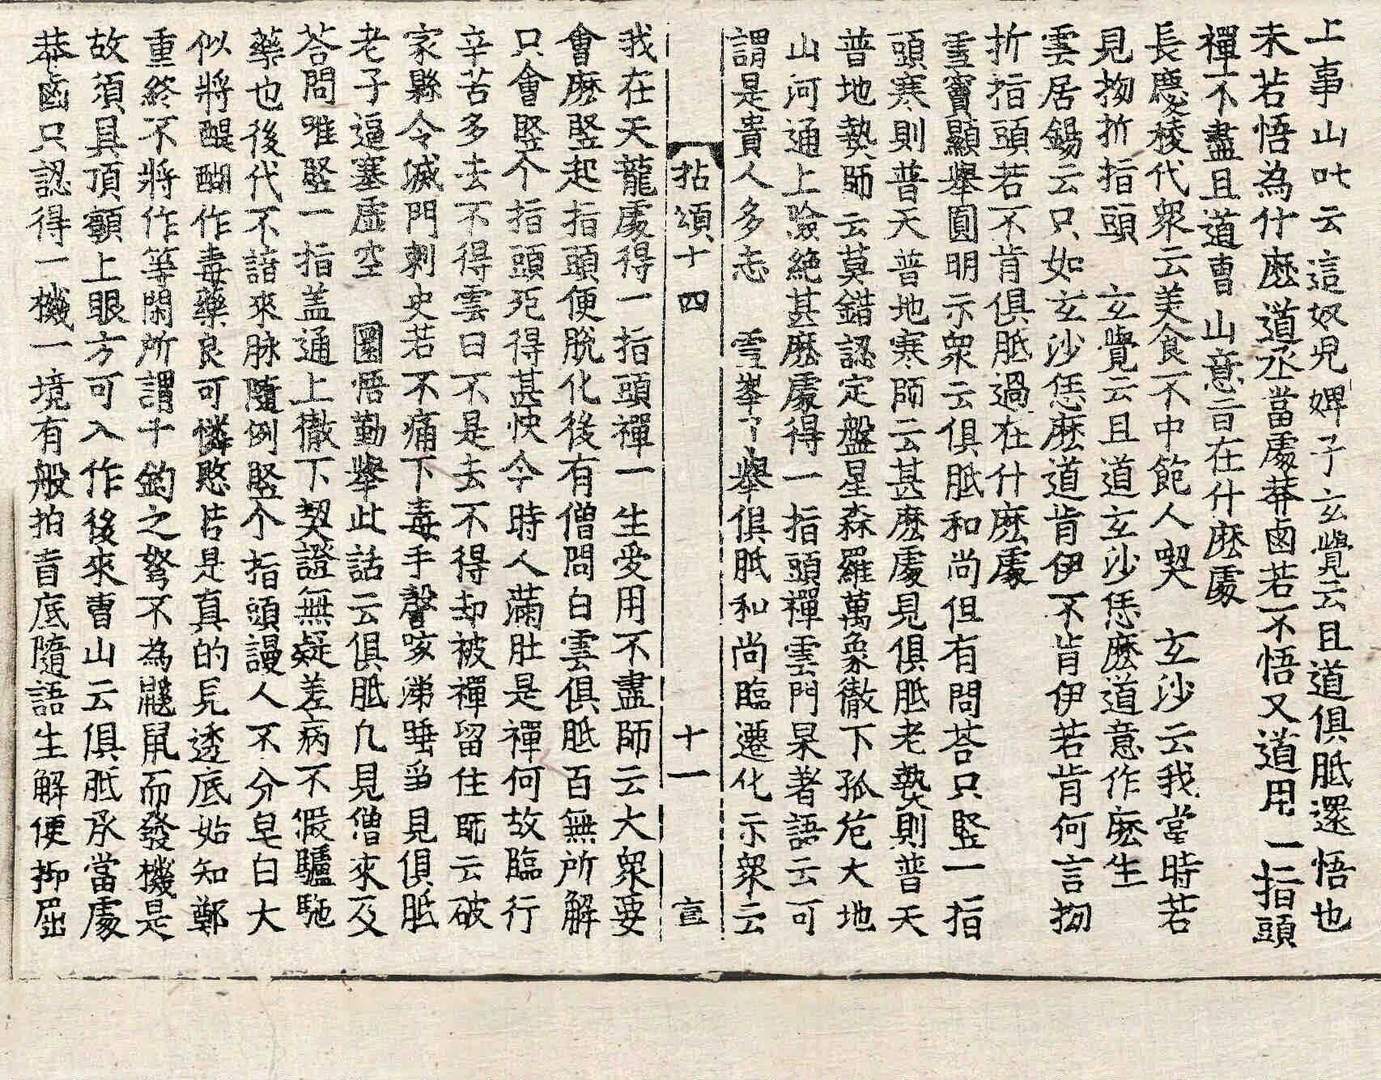 上事山吒云這奴兒婢子玄覺云且道俱胝還悟也
未若悟為什麽道丞當處莽鹵若不悟又道用一指頭
禪不盡且道曺山意旨在什麽處
長慶稜代衆云美食不中飽人喫 玄沙云我當時若
見拗折指頭 玄覺云且道玄沙恁麽道意作麽生
雲居錫云只如玄沙恁麽道肯伊不肯伊若肯何言拗
折指頭若不肯俱胝過在什麽處
雪竇顯擧圓明示衆云俱胝和尚但有問荅只竪一指
頭寒則普天普地寒師云甚麽處見俱胝老𤍠則普天
普地𤍠師云莫錯認定盤星森羅萬象徹下孤危大地
山河通上嶮絶甚麽處得一指頭禪雲門杲著語云可
謂是貴人多忘 雪峯了擧俱胝和尚臨遷化示衆云
拈頌十四 十一 宣
我在天龍處得一指頭禪一生受用不盡師云大衆要
會麽竪起指頭便脫化後有僧問白雲俱胝百無所解
只會竪个指頭死得甚快今時人滿肚是禪何故臨行
辛苦多去不得雲曰不是去不得却被禪留住師云破
家縣令滅門刺史若不痛下毒手謦咳涕唾當見俱胝
老子逼塞虛空 圜悟勤擧此話云俱胝凡見僧來及
荅問唯竪一指盖通上徹下契證無疑差病不假驢馳
藥也後代不諳來脉隨例竪个指頭謾人不分皂白大
似將醍醐作毒藥良可憐愍若是真的見透底始知鄭
重終不將作等閑所謂千鈞之弩不為鼷鼠而發機是
故須具頂𩕳上眼方可入作後來曺山云俱胝承當處
莽鹵只認得一機一境有般拍盲底隨語生解便抑屈